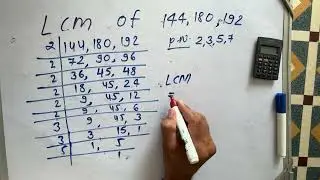 Lcm of 144,180,192
p.n. 2,3,5,7
2 144, 180, 192
2 72, 90, 96
2 36, 45, 48
2 18, 45, 24
2 9, 45, 12
2 9, 45, 6
3 9, 45, 3
3 3, 15, 1
5 1, 5
1
LCM